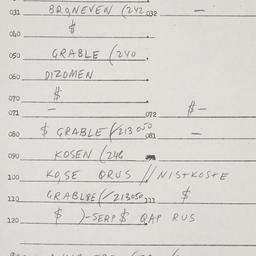 031 BRONEVEN (242 032 -
040 $
050 GRABLE (240
060 DIZOMEN
070 $
071 - 072 $-
080 $ GRABLE (213050 081 -
090 KOSEN (246
100 KO,SE QRUS // NISTKOSTE
110 GRABLSE (213050 111 $
120 $ )-SERP $ QAP RUS